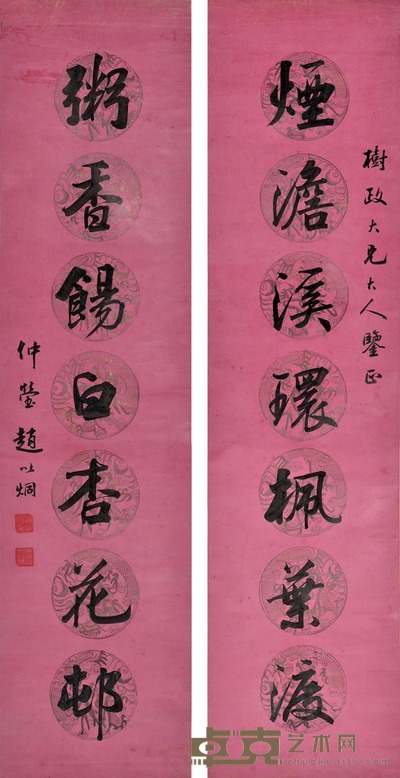 樹政大兄大人鑒正
煙澹溪環楓葉渡
粥香餳白杏花邨
仲瑩趙以炯
卓克艺术网
www.zhuokearts.com